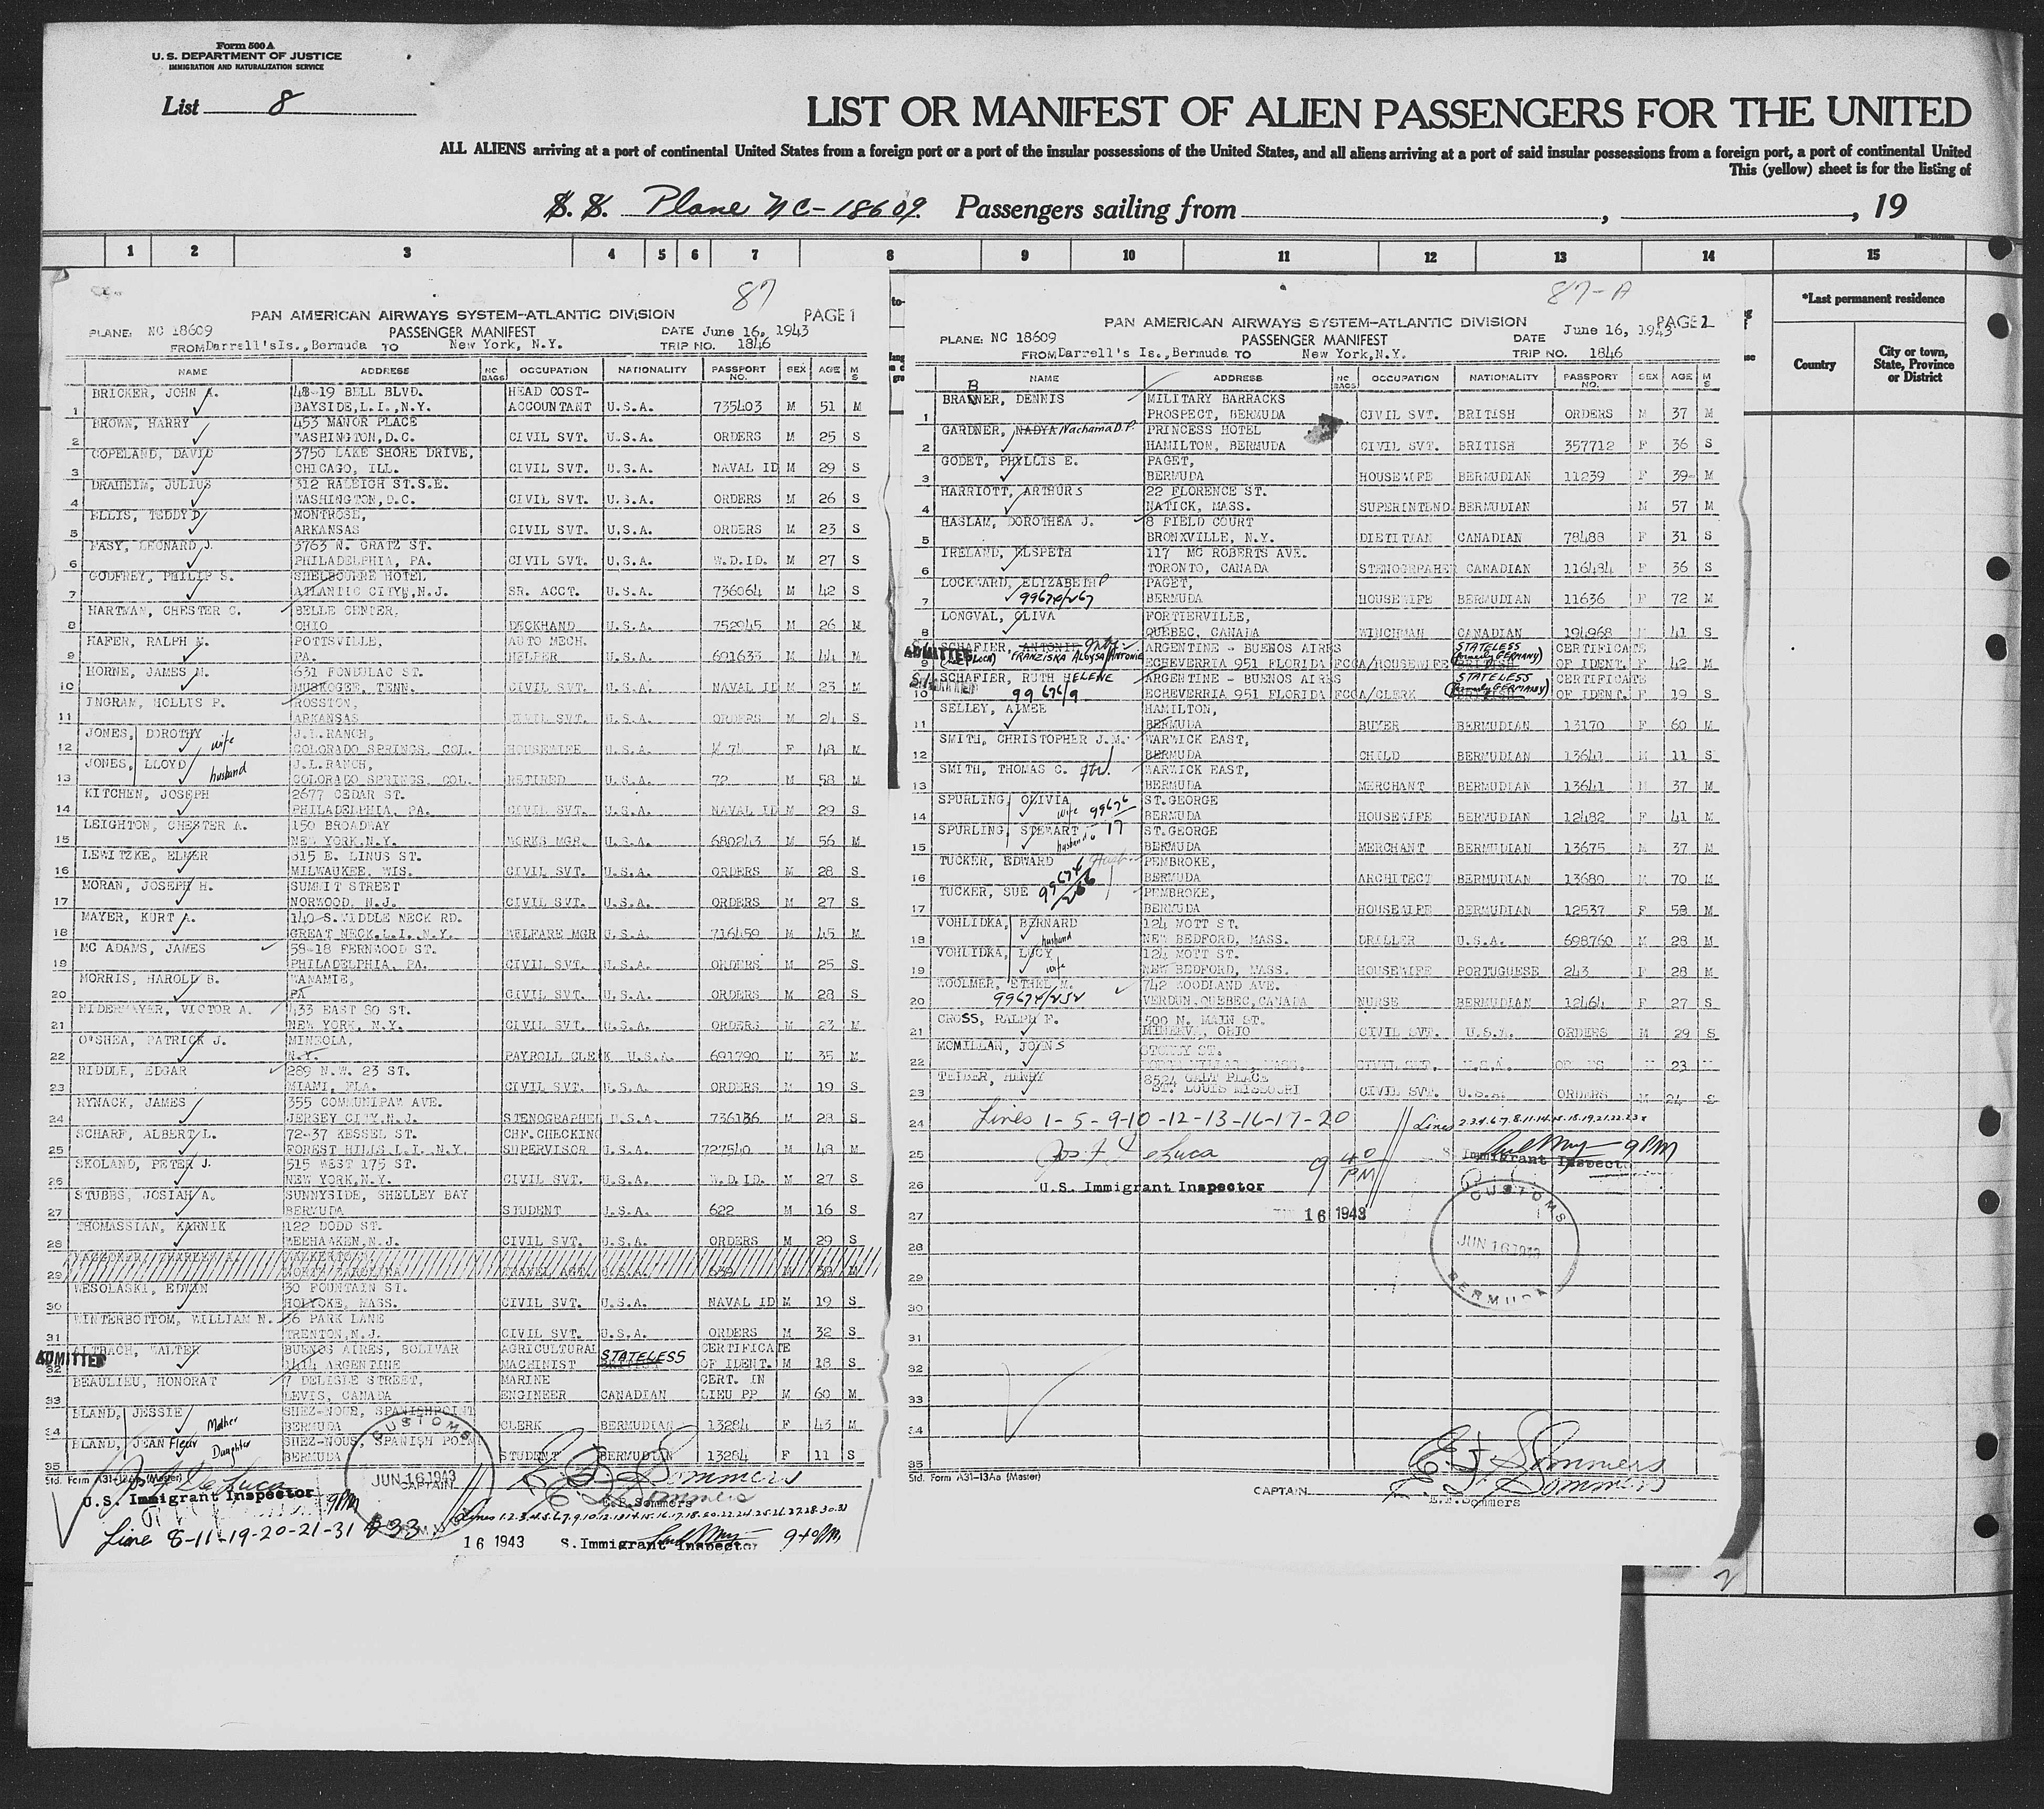 Form 500 A
U. S. DEPARTMENT OF JUSTICE
IMMIGRATION AND NATURALIZATION SERVICE
List 8
LIST OR MANIFEST OF ALIEN PASSENGERS FOR THE UNITED
ALL ALIENS arriving at a port of continental United States from a foreign port or a port of the insular possessions of the United States, and all aliens arriving at a port of said insular possessions from a foreign port, a port of continental United
This (yellow) sheet is for the listing of
S. S. Plane NC-18609. Passengers sailing from , , 19
1 2 3 4 5 6 7 8 9 10 11 12 13 14 15
*Last permanent residence
Country City or town, State, Province or District
87
PAN AMERICAN AIRWAYS SYSTEM-ATLANTIC DIVISION PAGE 1
PLANE: NC 18609 PASSENGER MANIFEST DATE June 16, 1943
FROM Darrell's Is., Bermuda TO New York, N.Y. TRIP NO. 1846
NAME ADDRESS NO BAGS OCCUPATION NATIONALITY PASSPORT NO. SEX AGE M S
BRICKER, JOHN A. 48-19 BELL BLVD. HEAD COST-
1 BAYSIDE, L.I., N.Y. ACCOUNTANT U.S.A. 735403 M 51 M
BROWN, HARRY 453 MANOR PLACE
2 WASHINGTON, D.C. CIVIL SVT. U.S.A. ORDERS M 25 S
COPELAND, DAVID 3750 LAKE SHORE DRIVE,
3 CHICAGO, ILL. CIVIL SVT. U.S.A. NAVAL ID M 29 S
DRAHEIM, JULIUS 312 RALEIGH ST.S.E.
4 WASHINGTON, D.C. CIVIL SVT. U.S.A. ORDERS M 26 S
ELLIS, TEDDY D. MONTROSE,
5 ARKANSAS CIVIL SVT. U.S.A. ORDERS M 23 S
FASY, LEONARD J. 3763 N. GRATZ ST.
6 PHILADELPHIA, PA. CIVIL SVT. U.S.A. W.D.ID. M 27 S
GODFREY, PHILIP S. SHELBOURNE HOTEL
7 ATLANTIC CITY, N.J. SR. ACCT. U.S.A. 736064 M 42 S
HARTMAN, CHESTER C. BELLE CENTER,
8 OHIO DECKHAND U.S.A. 752945 M 26 M
HAFER, RALPH M. POTTSVILLE, AUTO MECH.
9 PA. HELPER U.S.A. 691633 M 44 M
HORNE, JAMES M. 631 FONDULAC ST.
10 MUSKOGEE, TENN. CIVIL SVT. U.S.A. NAVAL ID M 23 M
INGRAM, HOLLIS P. ROSSTON,
11 ARKANSAS CIVIL SVT. U.S.A. ORDERS M 24 S
JONES, DOROTHY wife J.L.RANCH,
12 COLORADO SPRINGS, COL. HOUSEWIFE U.S.A. 74 F 48 M
JONES, LLOYD husband J.L.RANCH,
13 COLORADO SPRINGS, COL. RETIRED U.S.A. 72 M 58 M
KITCHEN, JOSEPH 2677 CEDAR ST.
14 PHILADELPHIA, PA. CIVIL SVT. U.S.A. NAVAL ID M 29 S
LEIGHTON, CHESTER A. 150 BROADWAY
15 NEW YORK, N.Y. WORKS MGR. U.S.A. 680243 M 56 M
LEWITZKE, ELMER 315 E. LINUS ST.
16 MILWAUKEE, WIS. CIVIL SVT. U.S.A. ORDERS M 28 S
MORAN, JOSEPH H. SUMMIT STREET
17 NORWOOD, N.J. CIVIL SVT. U.S.A. ORDERS M 27 S
MAYER, KURT A. 140 S. MIDDLE NECK RD.
18 GREAT NECK, L.I., N.Y. WELFARE MGR U.S.A. 716459 M 45 M
MC ADAMS, JAMES 58-18 FERNWOOD ST.
19 PHILADELPHIA, PA. CIVIL SVT. U.S.A. ORDERS M 25 S
MORRIS, HAROLD B. WANAMIE,
20 PA CIVIL SVT. U.S.A. ORDERS M 28 S
NIDERMAYER, VICTOR A. 433 EAST 80 ST.
21 NEW YORK, N.Y. CIVIL SVT. U.S.A. ORDERS M 23 M
O'SHEA, PATRICK J. MINEOLA,
22 N.Y. PAYROLL CLERK U.S.A. 691790 M 35 M
RIDDLE, EDGAR 289 N.W. 23 ST.
23 MIAMI, FLA. CIVIL SVT. U.S.A. ORDERS M 19 S
RYNACK, JAMES 355 COMMUNIPAW AVE.
24 JERSEY CITY, N.J. STENOGRAPHER U.S.A. 736136 M 28 S
SCHARF, ALBERT L. 72-37 KESSEL ST. CHF. CHECKING
25 FOREST HILLS, L.I., N.Y. SUPERVISOR U.S.A. 727540 M 48 M
SKOLAND, PETER J. 515 WEST 175 ST.
26 NEW YORK, N.Y. CIVIL SVT. U.S.A. W.D.ID. M 27 S
STUBBS, JOSIAH A. SUNNYSIDE, SHELLEY BAY
27 BERMUDA STUDENT U.S.A. 622 M 16 S
THOMASSIAN, KARNIK 122 DODD ST.
28 WEEHAWKEN, N.J. CIVIL SVT. U.S.A. ORDERS M 29 S
29 NORTH CAROLINA TRAVEL AGT. U.S.A. 639 M 39 M
WESOLASKI, EDWIN 30 FOUNTAIN ST.
30 HOLYOKE, MASS. CIVIL SVT. U.S.A. NAVAL ID M 19 S
WINTERBOTTOM, WILLIAM N. 36 PARK LANE
31 TRENTON, N.J. CIVIL SVT. U.S.A. ORDERS M 32 S
ADMITTED ALTBACH, WALTER BUENOS AIRES, BOLIVAR AGRICULTURAL STATELESS CERTIFICATE
32 1414 ARGENTINE MACHINIST OF IDENT. M 18 S
BEAULIEU, HONORAT 7 DELISLE STREET, MARINE CERT. IN
33 LEVIS, CANADA ENGINEER CANADIAN LIEU PP M 60 M
BLAND, JESSIE Mother SHEZ-NOUS, SPANISH POINT
34 BERMUDA CLERK BERMUDIAN 13284 F 43 M
BLAND, JEAN Fleur Daughter SHEZ-NOUS, SPANISH POINT
35 BERMUDA STUDENT BERMUDIAN 13284 F 11 S
Std. Form A31-13Aa (Master)
Jos. F. De Luca
U.S. Immigrant Inspector 9 PM
Line 8-11-19-20-21-31 & 33
CUSTOMS JUN 16 1943 BERMUDA
CAPTAIN E.F. Sommers
E.F. Sommers
Lines 1.2.3.4.5.6.7.9.10.12.13.14.15.16.17.18.20.22.24.25.26.27.28.30.32
16 1943 S. Immigrant Inspector 9 40 PM
87-A
PAN AMERICAN AIRWAYS SYSTEM-ATLANTIC DIVISION PAGE 2
PLANE: NC 18609 PASSENGER MANIFEST DATE June 16, 1943
FROM Darrell's Is., Bermuda TO New York, N.Y. TRIP NO. 1846
NAME ADDRESS NO BAGS OCCUPATION NATIONALITY PASSPORT NO. SEX AGE M S
BRABNER, DENNIS MILITARY BARRACKS
1 PROSPECT, BERMUDA CIVIL SVT. BRITISH ORDERS M 37 M
GARDNER, NADYA Nachama D.P. PRINCESS HOTEL
2 HAMILTON, BERMUDA CIVIL SVT. BRITISH 357712 F 36 S
GODET, PHYLLIS E. PAGET,
3 BERMUDA HOUSEWIFE BERMUDIAN 11239 F 39 M
HARRIOTT, ARTHUR S 22 FLORENCE ST.
4 NATICK, MASS. SUPERINTEND BERMUDIAN M 57 M
HASLAM, DOROTHEA J. 8 FIELD COURT
5 BRONXVILLE, N.Y. DIETITIAN CANADIAN 78488 F 31 S
IRELAND, ELSPETH 117 MC ROBERTS AVE.
6 TORONTO, CANADA STENOGRAPHER CANADIAN 116484 F 36 S
LOCKWARD, ELIZABETH P PAGET,
7 99674/267 BERMUDA HOUSEWIFE BERMUDIAN 11636 F 72 M
LONGVAL, OLIVA FORTIERVILLE,
8 QUEBEC, CANADA WINCHMAN CANADIAN 194968 M 41 S
ADMITTED SCHAFIER, ANTONIE ARGENTINE - BUENOS AIRES STATELESS CERTIFICATE
9 FRANZISKA ALOYSA ANTONIE ECHEVERRIA 951 FLORIDA FCCA/HOUSEWIFE (formerly GERMANY) OF IDENT. F 42 M
SCHAFIER, RUTH HELENE ARGENTINE - BUENOS AIRES STATELESS CERTIFICATE
10 99676/9 ECHEVERRIA 951 FLORIDA FCCA/CLERK (formerly GERMANY) OF IDENT. F 19 S
SELLEY, AIMEE HAMILTON,
11 BERMUDA BUYER BERMUDIAN 13170 F 60 M
SMITH, CHRISTOPHER J.M. WARWICK EAST,
12 BERMUDA CHILD BERMUDIAN 13641 M 11 S
SMITH, THOMAS C. WARWICK EAST,
13 BERMUDA MERCHANT BERMUDIAN 13641 M 37 M
SPURLING, OLIVIA wife 99676/17 ST.GEORGE
14 BERMUDA HOUSEWIFE BERMUDIAN 12482 F 41 M
SPURLING, STEWART husband ST.GEORGE
15 BERMUDA MERCHANT BERMUDIAN 13675 M 37 M
TUCKER, EDWARD PEMBROKE,
16 BERMUDA ARCHITECT BERMUDIAN 13680 M 70 M
TUCKER, SUE 99674/266 PEMBROKE,
17 BERMUDA HOUSEWIFE BERMUDIAN 12537 F 58 M
VOHLIDKA, BERNARD husband 124 MOTT ST.
18 NEW BEDFORD, MASS. DRILLER U.S.A. 698760 M 28 M
VOHLIDKA, LUCY wife 124 MOTT ST.
19 NEW BEDFORD, MASS. HOUSEWIFE PORTUGUESE 243 F 28 M
WOOLMER, ETHEL M. 742 WOODLAND AVE.
20 99674/252 VERDUN, QUEBEC, CANADA NURSE BERMUDIAN 12464 F 27 S
CROSS, RALPH F. 500 N. MAIN ST.
21 MINERVA, OHIO CIVIL SVT. U.S.A. ORDERS M 29 S
MCMILLAN, JOHN S
22 CIVIL SVT. U.S.A. 23
TEIBER, HENRY 8524 GALT PLACE
23 ST. LOUIS MISSOURI CIVIL SVT. U.S.A. ORDERS M 24 S
24 Lines 1-5-9-10-12-13-16-17-20 Lines 2.3.4.6.7.8.11.14.15.18.19.21.22.23
25 Jos. F. De Luca 9 40 PM S. Immigrant Inspect. 9 PM
26 U.S. Immigrant Inspector
27 16 1943
CUSTOMS JUN 16 1943 BERMUDA
28
29
30
31
32
33
34
35
Std. Form A31-13Aa (Master)
E F Sommers
CAPTAIN E.F. Sommers
E.F. Sommers
2